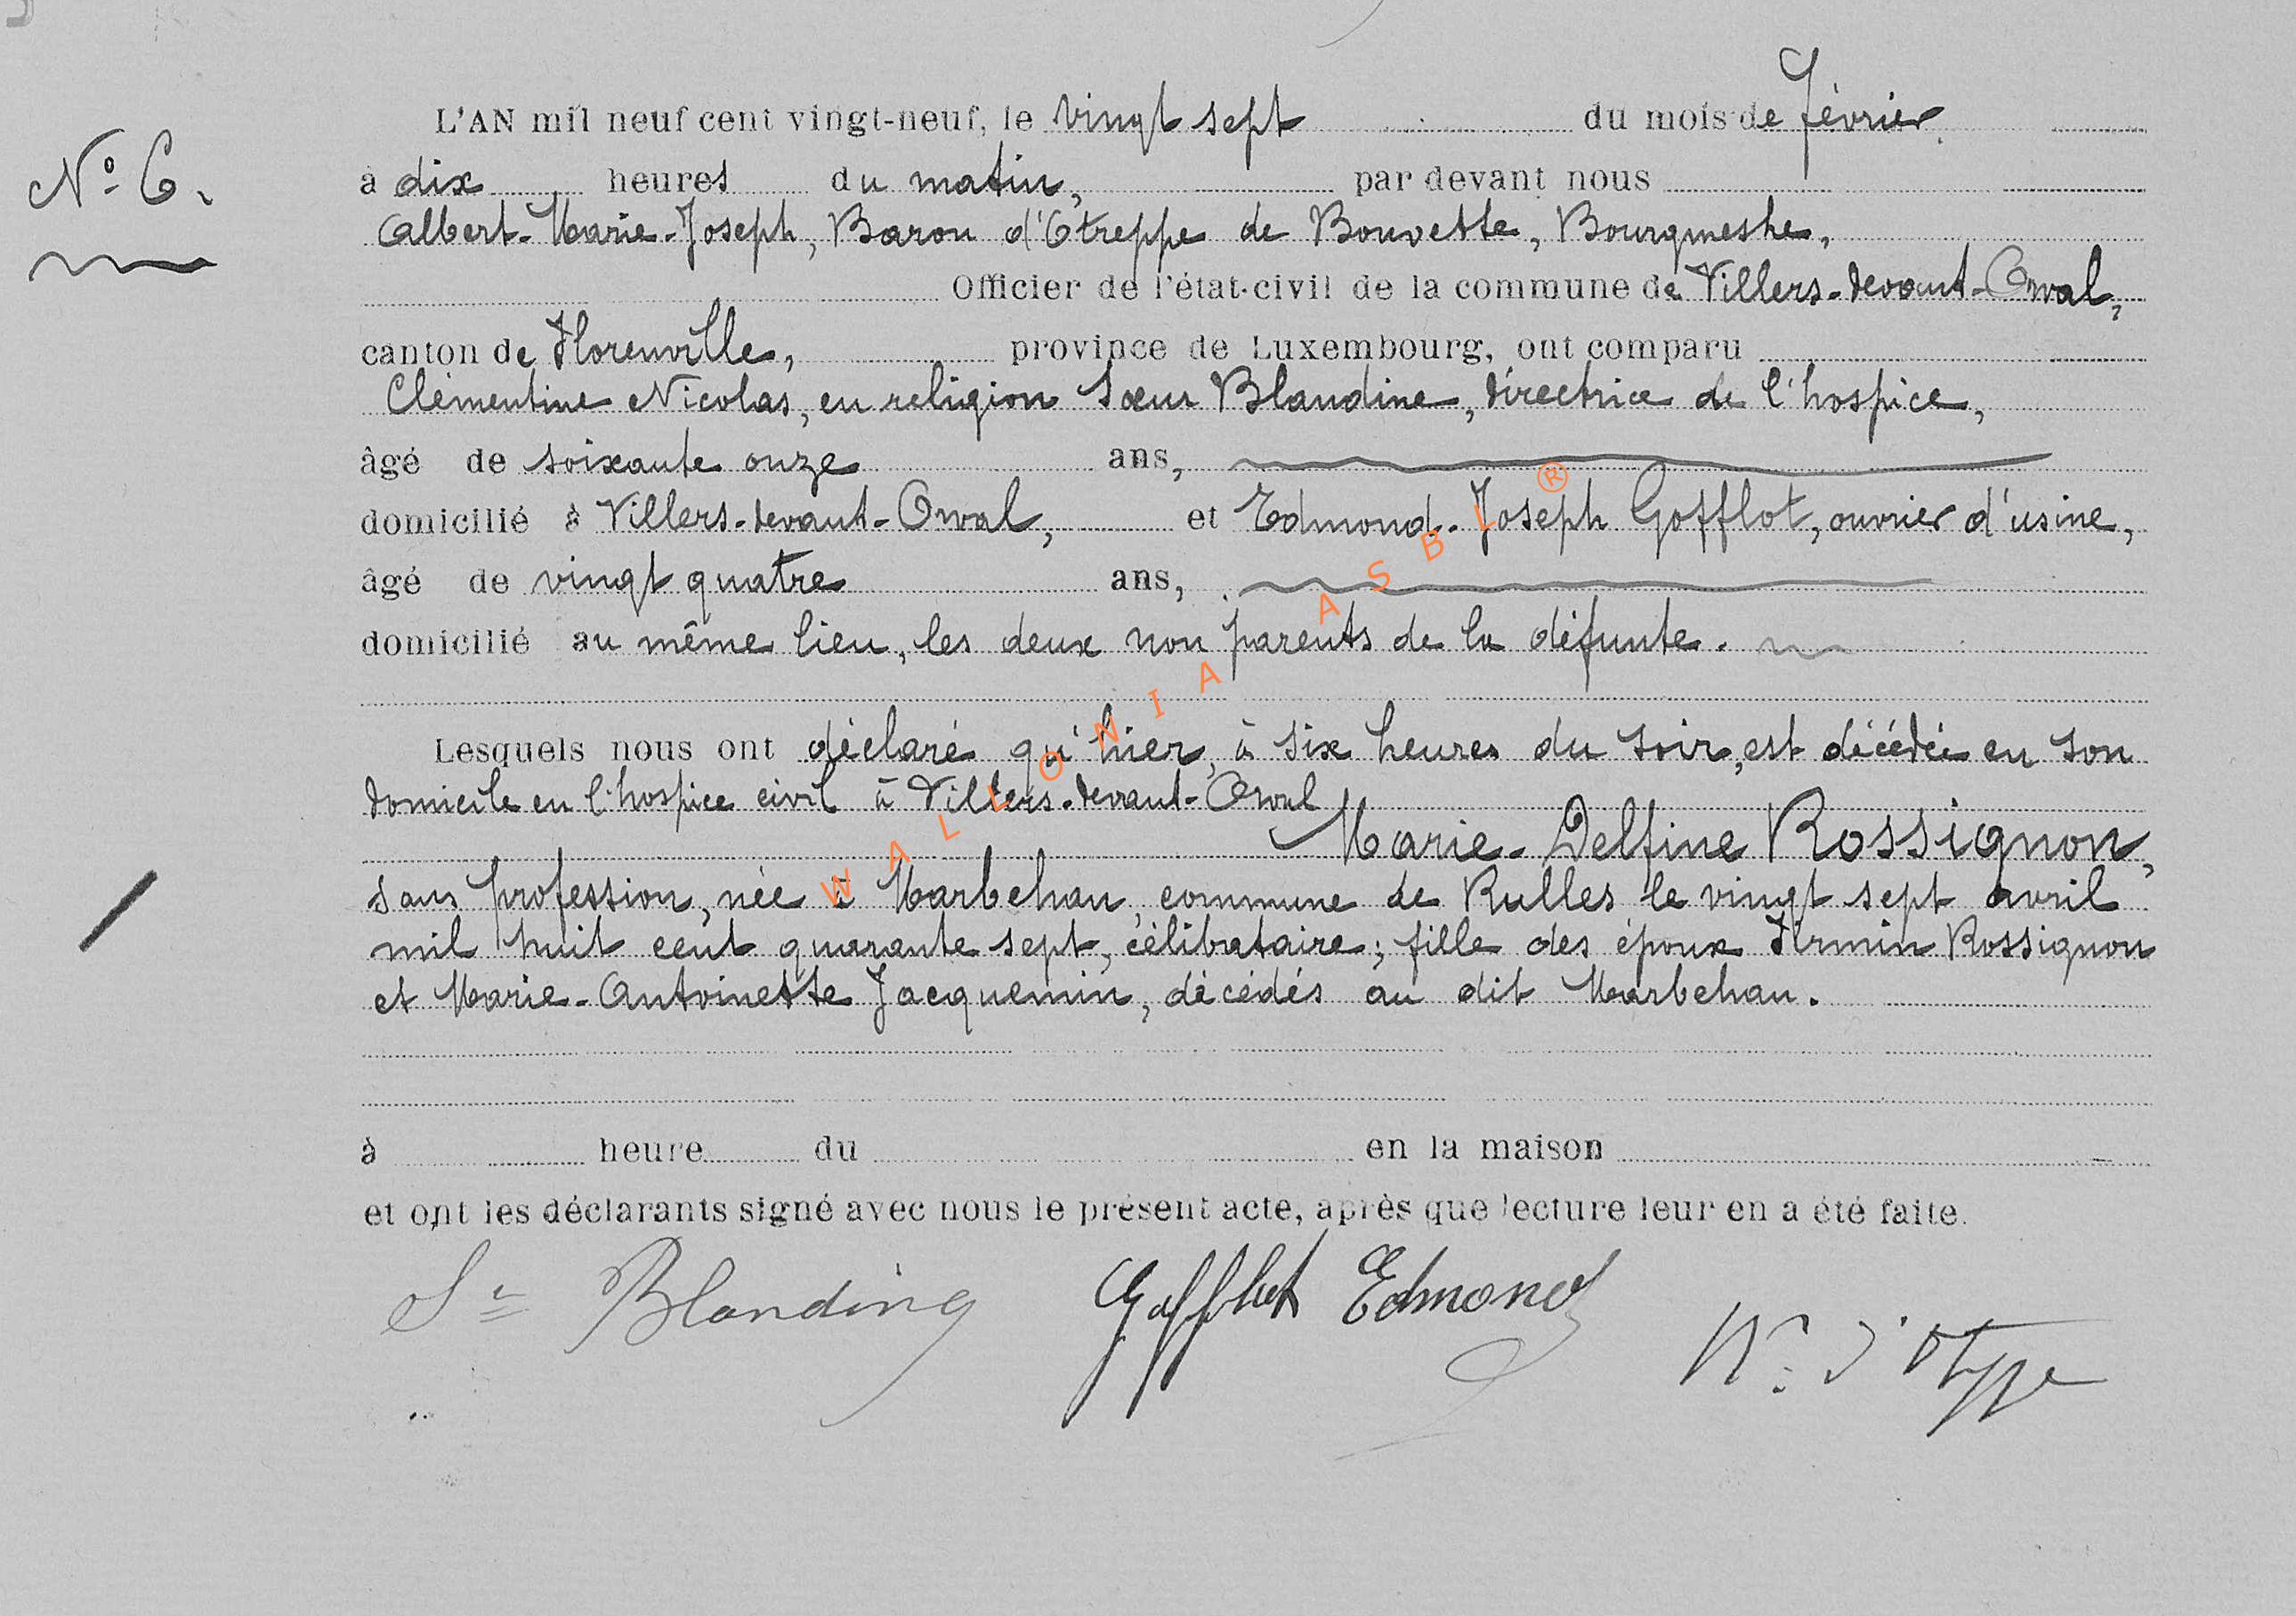 L'AN mil neuf cent vingt-neuf, le vingt sept du mois de février
N° 6.
à dix heures du matin, par devant nous
Albert-Marie-Joseph, Baron d'Otreppe de Bouvette, Bourgmestre,
Officier de l'état-civil de la commune de Villers-devant-Orval,
canton de Florenville, province de Luxembourg, ont comparu
Clémentine Nicolas, en religion Sœur Blandine, directrice de l'hospice,
âgé de soixante onze ans,
domicilié à Villers-devant-Orval, et Edmond-Joseph Gofflot, ouvrier d'usine,
âgé de vingt quatre ans,
domicilié au même lieu, les deux non parents de la défunte.
Lesquels nous ont déclaré qu'hier, à six heures du soir, est décédée en son
domicile en l'hospice civil à Villers-devant-Orval
Marie-Delfine Rossignon,
sans profession, née à Marbehan, commune de Rulles le vingt sept avril
mil huit cent quarante sept, célibataire; fille des époux Firmin Rossignon
et Marie-Antoinette Jacquemin, décédés au dit Marbehan.
à heure du en la maison
et ont les déclarants signé avec nous le présent acte, après que lecture leur en a été faite.
Sr Blandine Gofflot Edmond d'Otreppe
WALLONIA ASBL ®